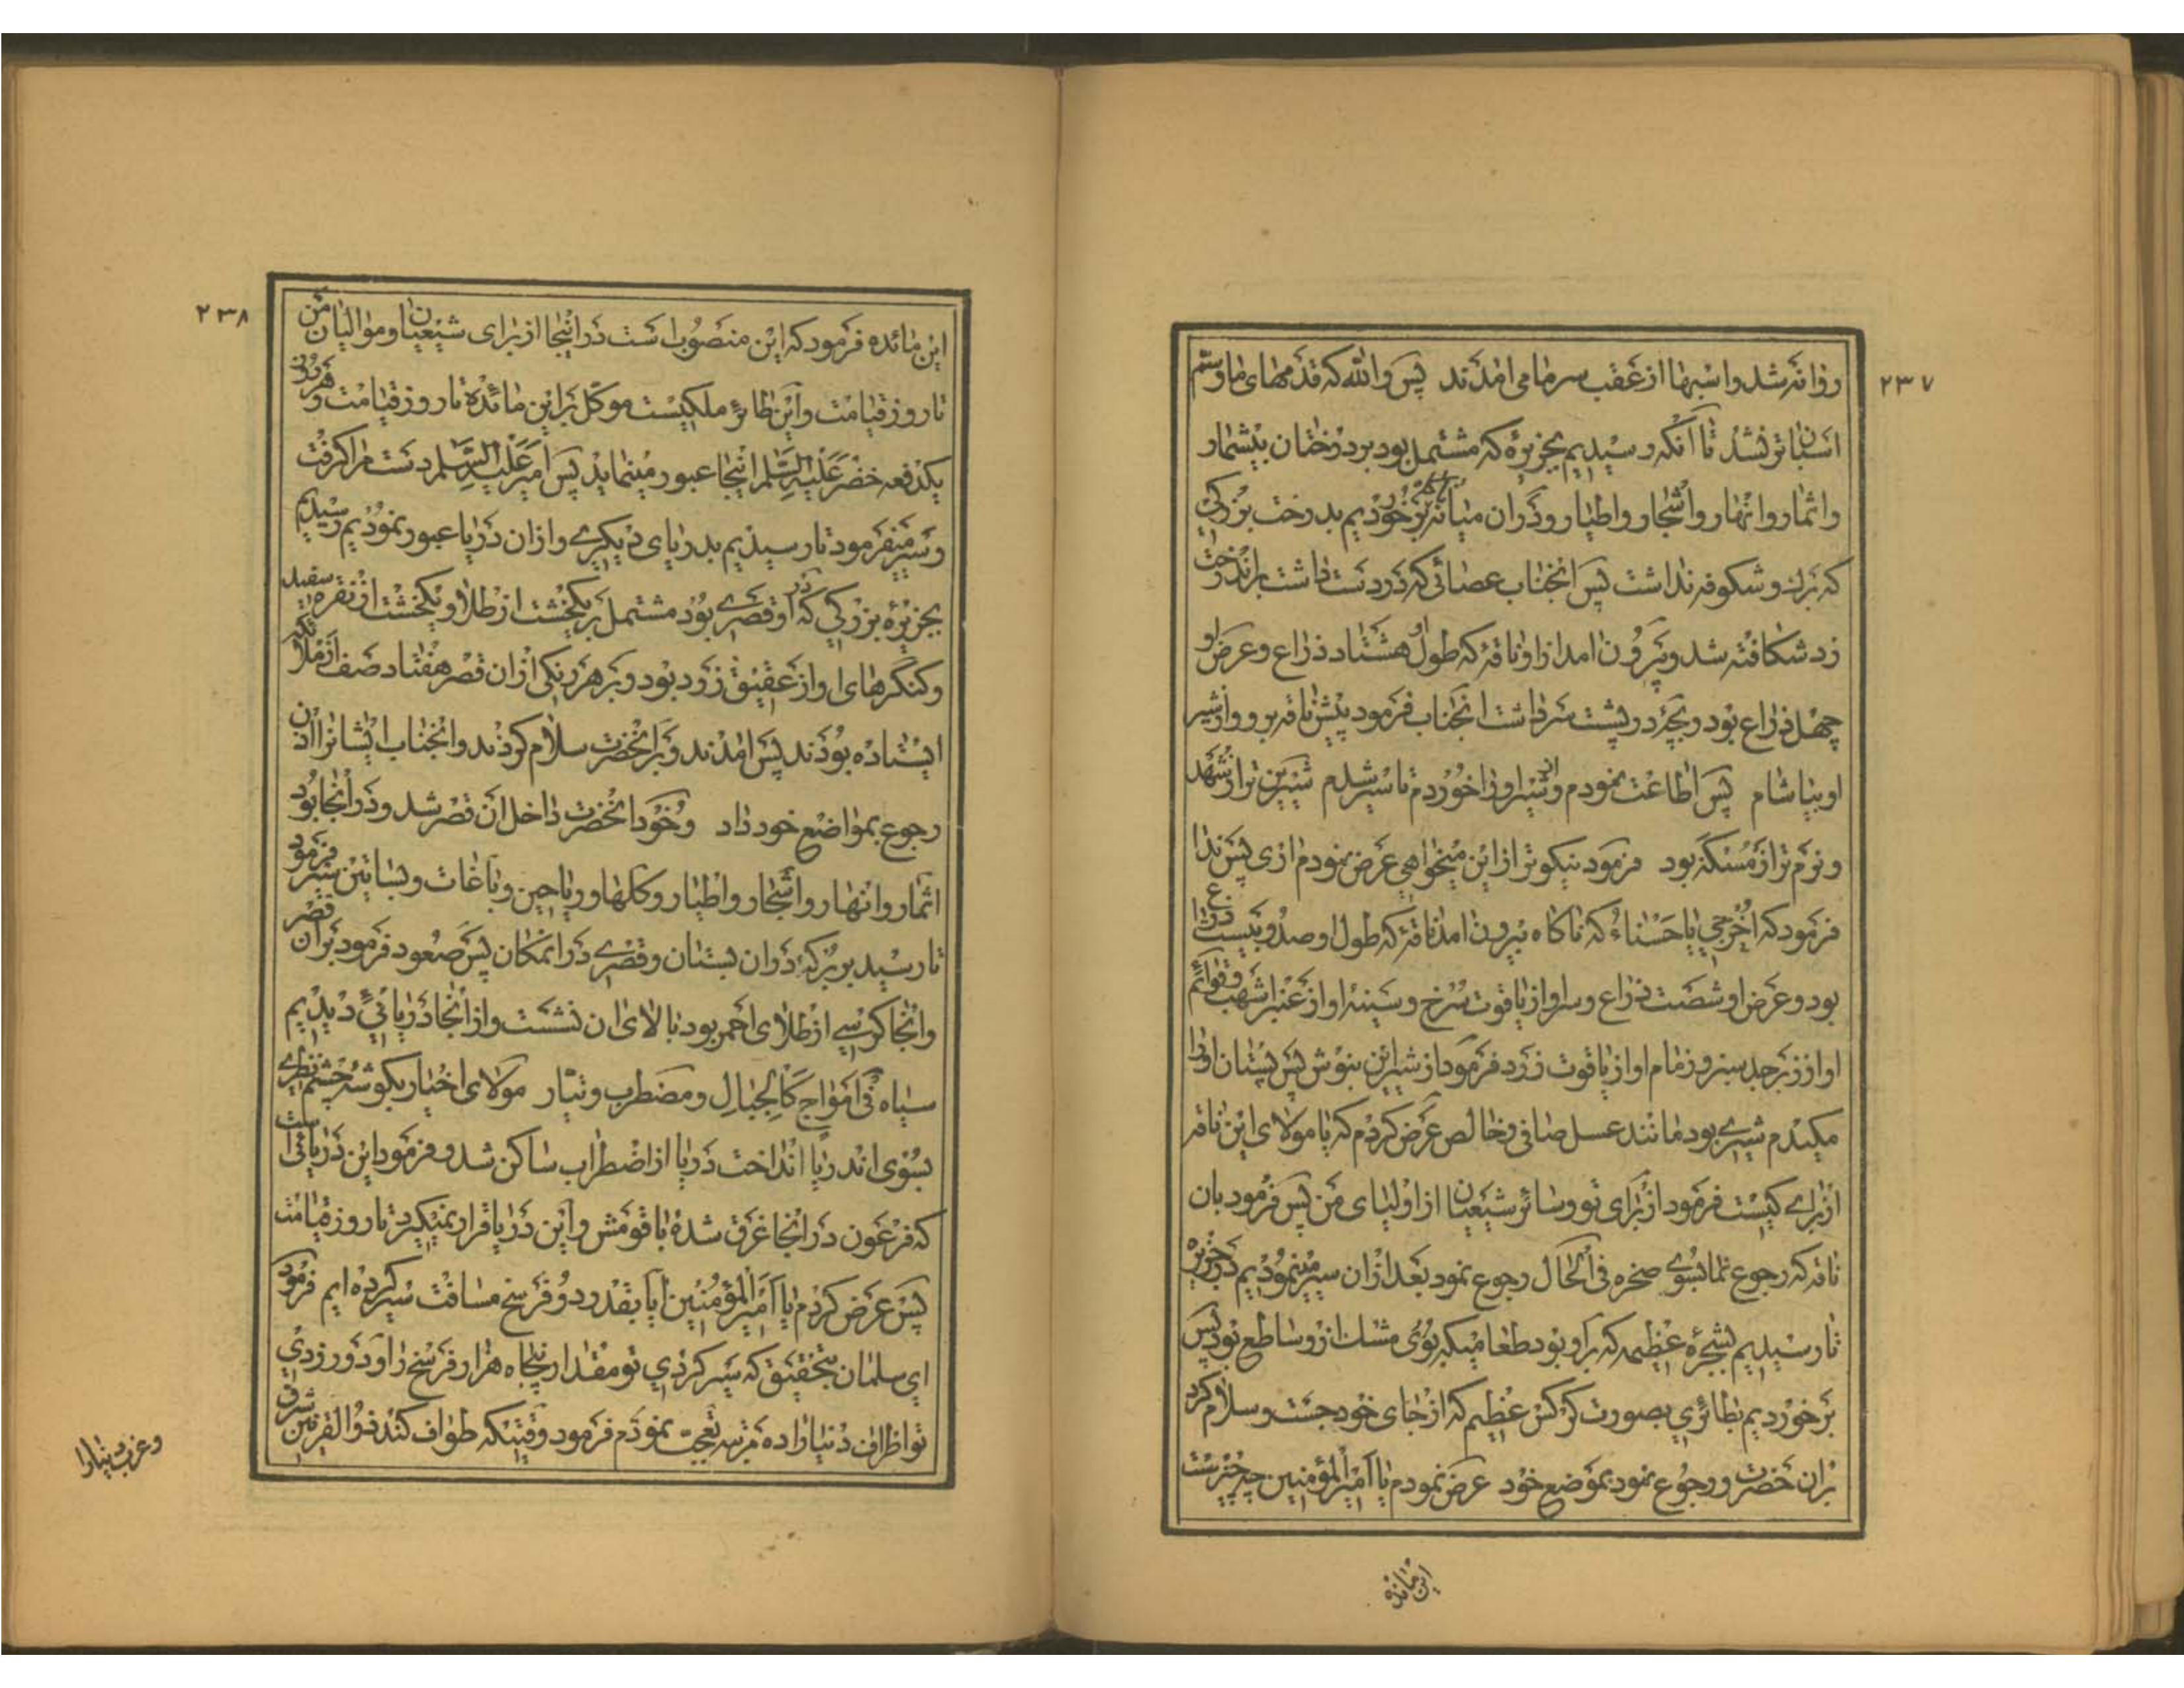 ۲۳۷
روانه شد و اسبها از عقب سر ما می امدند پس والله که قدمهای ما و سم
اسبان تر نشد تا آنکه رسیدیم بجزیره که مشتمل بود بر درختان بیشمار
و اثمار و انهار و اشجار و اطیار و در ان میانه بر خوردیم بدرخت بزرگی
که برك و شکوفه نداشت پس انجناب عصائی که در دست داشت بر اندرخت
زد شکافته شد و بیرون امد از او ناقه که طول او هشتاد ذراع و عرض او
چهل ذراع بود و بچۀ در پشت سر داشت انجناب فرمود پیش ناقه برو و از شیر
او بیاشام پس اطاعت نمودم و از شیر او را خوردم تا سیر شدم شیرین تر از شهد
و نرم تر از مسکه بود فرمود نیکوتر از این میخواهی عرض نمودم اری پس ندا
فرمود که اُخرجی یا حسناء که ناکاه بیرون امد ناقه که طول او صد و بیست ذراع
بود و عرض او شصت ذراع و سر او از یاقوت سرخ و سینه او از عنبر اشهب و قوائم
او از زبرجد سبز و زمام او از یاقوت زرد فرمود از شیر این بنوش پس پستان او را
مکیدم شیری بود مانند عسل صافی و خالص عرض کردم که یا مولای این ناقه
از برای کیست فرمود از برای تو و سائر شیعیان از اولیای من پس فرمود بان
ناقه که رجوع نما بسوی صخره فی الحال رجوع نمود بعد از ان سیر مینمودیم در جزیره
تا رسیدیم بشجرۀ عظیمه که بر او بود طعامیکه بوی مشك از او ساطع بود پس
بر خوردیم بطائری بصورت کرکس عظیم که از جای خود جست و سلام کرد
بر ان حضرت و رجوع نمود بموضع خود عرض نمودم یا امیرالمؤمنین چه چیز است
این مائده
۲۳۸
این مائده فرمود که این منصوب است در اینجا از برای شیعیان و موالیان من
تا روز قیامت و این طائر ملکیست موکل بر این مائده تا روز قیامت و هر روز
یکدفعه خضر علیه السلام اینجا عبور مینماید پس امیر علیه السلام دست مرا کرفت
و سیر میفرمود تا رسیدیم بدریای دیکری و از ان دریا عبور نمودیم رسیدیم
بجزیرۀ بزرکی که در او قصری بود مشتمل بر یکخشت از طلا و یکخشت از نقره سفید
و کنگرهای او از عقیق زرد بود و بر هر رکنی از ان قصر هفتاد صف از ملائکه
ایستاده بودند پس امدند و بر انحضرت سلام کردند و انجناب ایشانرا اذن
رجوع بمواضع خود داد و خود انحضرت داخل ان قصر شد و در انجا بود
اثمار و انهار و اشجار و اطیار و کلها و ریاحین و باغات و بساتین سیر فرمود
تا رسید ببرکۀ در ان بستان و قصری در انمکان پس صعود فرمود بر ان قصر
و انجا کرسی از طلای احمر بود بالای ان نشست و از انجا دریائی دیدیم
سیاه فی امواج کالجبال و مضطرب و تیار مولای اخیار بکوشه چشم نظری
بسوی اندریا انداخت دریا از اضطراب ساکن شد و فرمود این دریائی است
که فرعون در انجا غرق شده با قومش و این دریا قرار نمیکیرد تا روز قیامت
پس عرض کردم یا امیرالمؤمنین ایا بقدر دو فرسخ مسافت سیر کرده ایم فرمود
ای سلمان بتحقیق که سیر کردی تو مقدار پنجاه هزار فرسخ را و دور زدی
تو اطراف دنیا را ده مرتبه تعجب نمودم فرمود وقتیکه طواف کند ذوالقرنین شرق
و غرب دنیا را